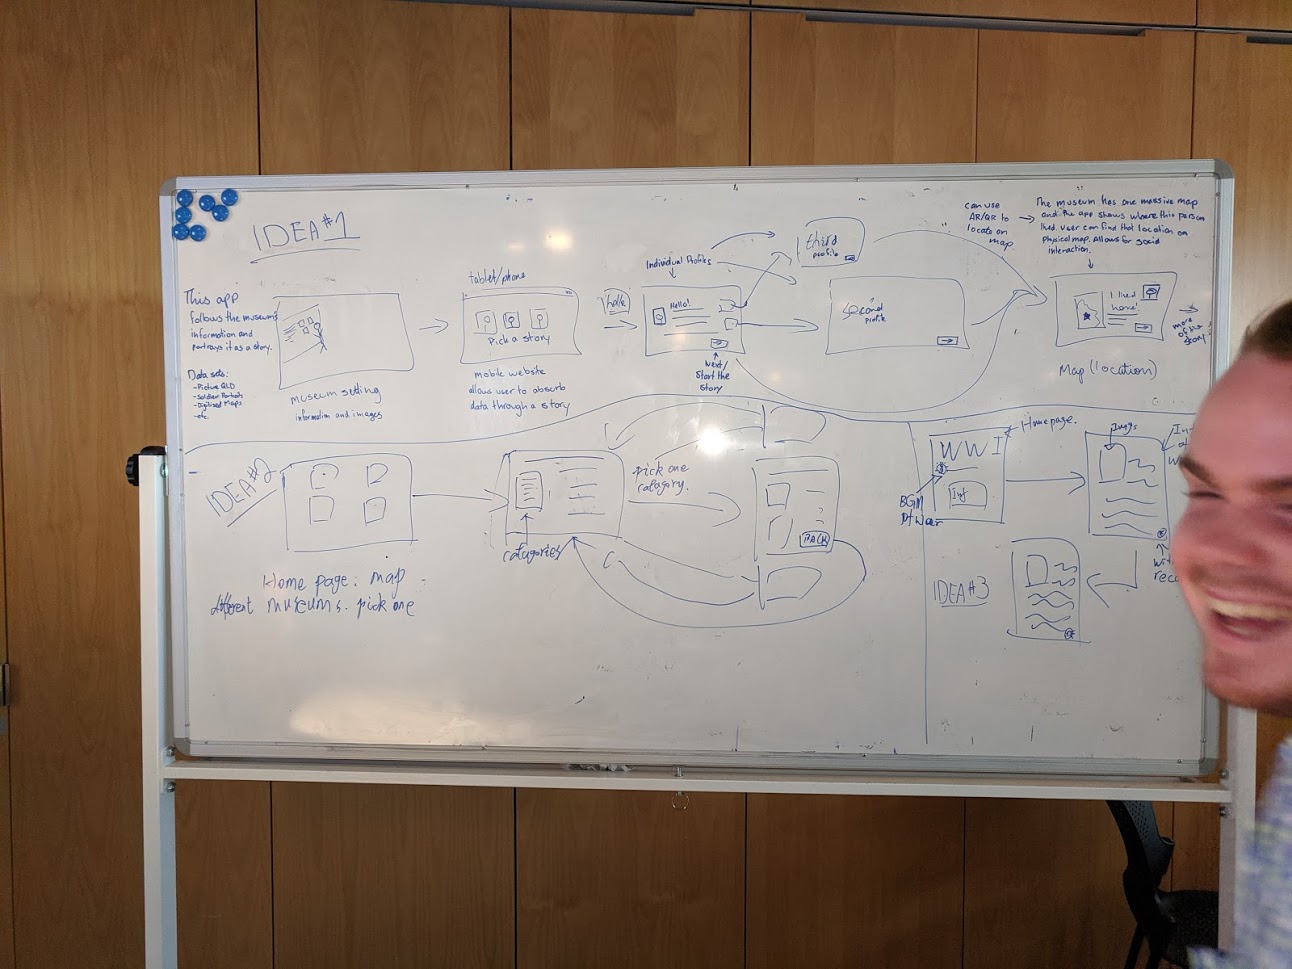 IDEA #1
This app
follows the museums
information and
portrays it as a story.
Data sets:
- Picture QLD
- Soldier Portraits
- Digitised Maps
- etc.
museum setting
information and images
tablet/phone
Pick a story
mobile website
allows user to absorb
data through a story
Individual Profiles
Hello!
Next/
Start the
story
third
profile
Second
profile
can use
AR/QR to
locate on
map
The museum has one massive map
and the app shows where this person
lived. User can find that location on
physical map. Allows for social
interaction.
I lived
here!
more
of the
story
Map (location)
IDEA #2
Home page: map
different museums. pick one
categories
pick one
category.
BACK
IDEA #3
WWI
Homepage.
Inf
BGM
Imgs